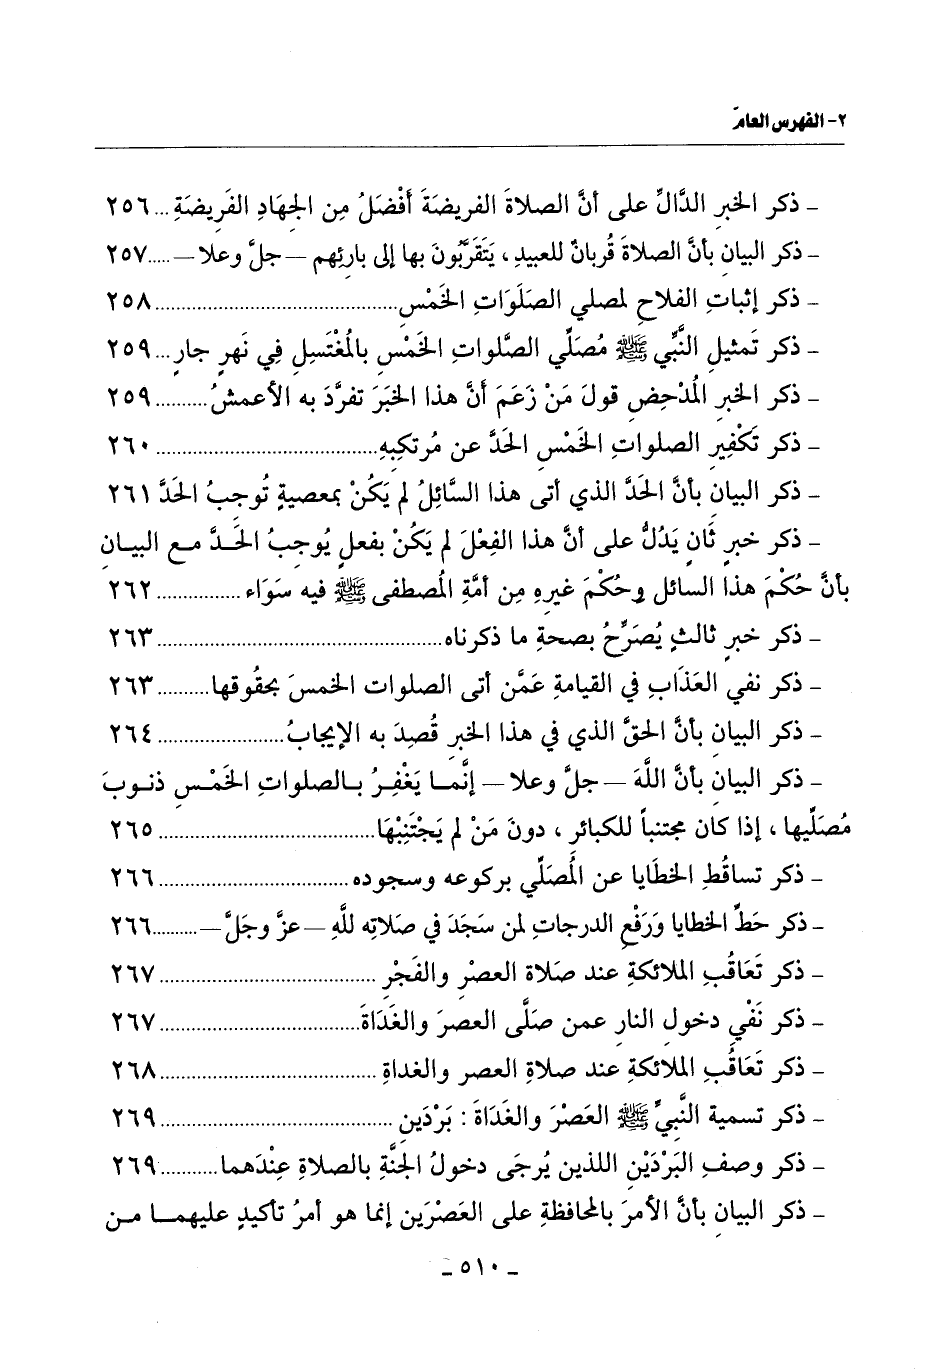 ٢- الفهرس العامّ
- ذكر الخبرِ الدَّالِّ على أنَّ الصلاةَ الفريضةَ أفْضَلُ مِن الجهادِ الفَريضةِ... ٢٥٦
- ذكر البيانِ بأنَّ الصلاةَ قُربانٌ للعبيدِ، يَتَقَرَّبُونَ بها إلى بارِئِهم —جلَّ وعلا—..... ٢٥٧
- ذكر إثباتِ الفلاحِ لمصلي الصلَوَاتِ الخَمْسِ........................................ ٢٥٨
- ذكر تَمثيلِ النَّبِّي ﷺ مُصَلِّي الصَّلواتِ الخَمْسِ بالمُغْتَسِلِ فِي نَهرٍ جارٍ... ٢٥٩
- ذكر الخبرِ المُدْحِضِ قولَ مَنْ زَعَمَ أَنَّ هذا الخبَرَ تفرَّدَ به الأعمشُ.......... ٢٥٩
- ذكر تَكْفِيرِ الصلواتِ الخَمْسِ الحَدَّ عن مُرتكبِهِ..................................... ٢٦٠
- ذكر البيانِ بأنَّ الحَدَّ الذي أتى هذا السَّائِلُ لم يَكُنْ بمعصيةٍ تُوجبُ الحَدَّ ٢٦١
- ذكر خبرٍ ثَانٍ يَدُلُّ على أنَّ هذا الفِعْلَ لم يَكُنْ بفعلٍ يُوجبُ الحَدَّ مع البيانِ
بأنَّ حُكْمَ هذا السائل وحُكْمَ غيرِهِ مِن أمَّةِ المُصطفى ﷺ فيه سَوَاء ................ ٢٦٢
- ذكر خبرٍ ثالثٍ يُصَرِّحُ بصحةِ ما ذكرناه............................................. ٢٦٣
- ذكر نفي العَذَابِ في القيامةِ عَمَّن أتى الصلوات الخمسَ بحقُوقها.......... ٢٦٣
- ذكر البيانِ بأنَّ الحقَّ الذي في هذا الخبرِ قُصِدَ به الإيجابُ...................... ٢٦٤
- ذكر البيانِ بأنَّ اللَّهَ —جلَّ وعلا— إنَّما يَغْفِرُ بالصلواتِ الخَمْسِ ذنوبَ
مُصَلِّيها، إذا كان مجتنباً للكبائرِ، دونَ مَنْ لم يَجْتَنِبْهَا................................. ٢٦٥
- ذكر تساقُطِ الخطَايا عن المُصَلِّي بركوعه وسجوده................................. ٢٦٦
- ذكر حَطِّ الخطايا وَرَفْعِ الدرجاتِ لمن سَجَدَ في صَلاتِه للَّهِ —عزَّ وجَلَّ—.......... ٢٦٦
- ذكر تَعَاقُبِ الملائكةِ عند صَلاة العصْرِ والفَجْرِ ..................................... ٢٦٧
- ذكر نَفْي دخولِ النارِ عمن صَلَّى العصرَ والغَدَاةَ................................... ٢٦٧
- ذكر تَعَاقُبِ الملائكةِ عند صلاةِ العصرِ والغداةِ .................................... ٢٦٨
- ذكر تسمية النَّبيِّ ﷺ العَصْرَ والغَدَاةَ: بَرْدَينِ ....................................... ٢٦٩
- ذكر وصفِ البَرْدَيْنِ اللذين يُرجَى دخولُ الجنَّةِ بالصلاةِ عِنْدَهما.......... ٢٦٩
- ذكر البيانِ بأنَّ الأمرَ بالمحافظةِ على العَصْرَينِ إنما هو أمرُ تأكيدٍ عليهما من
- ٥١٠ -